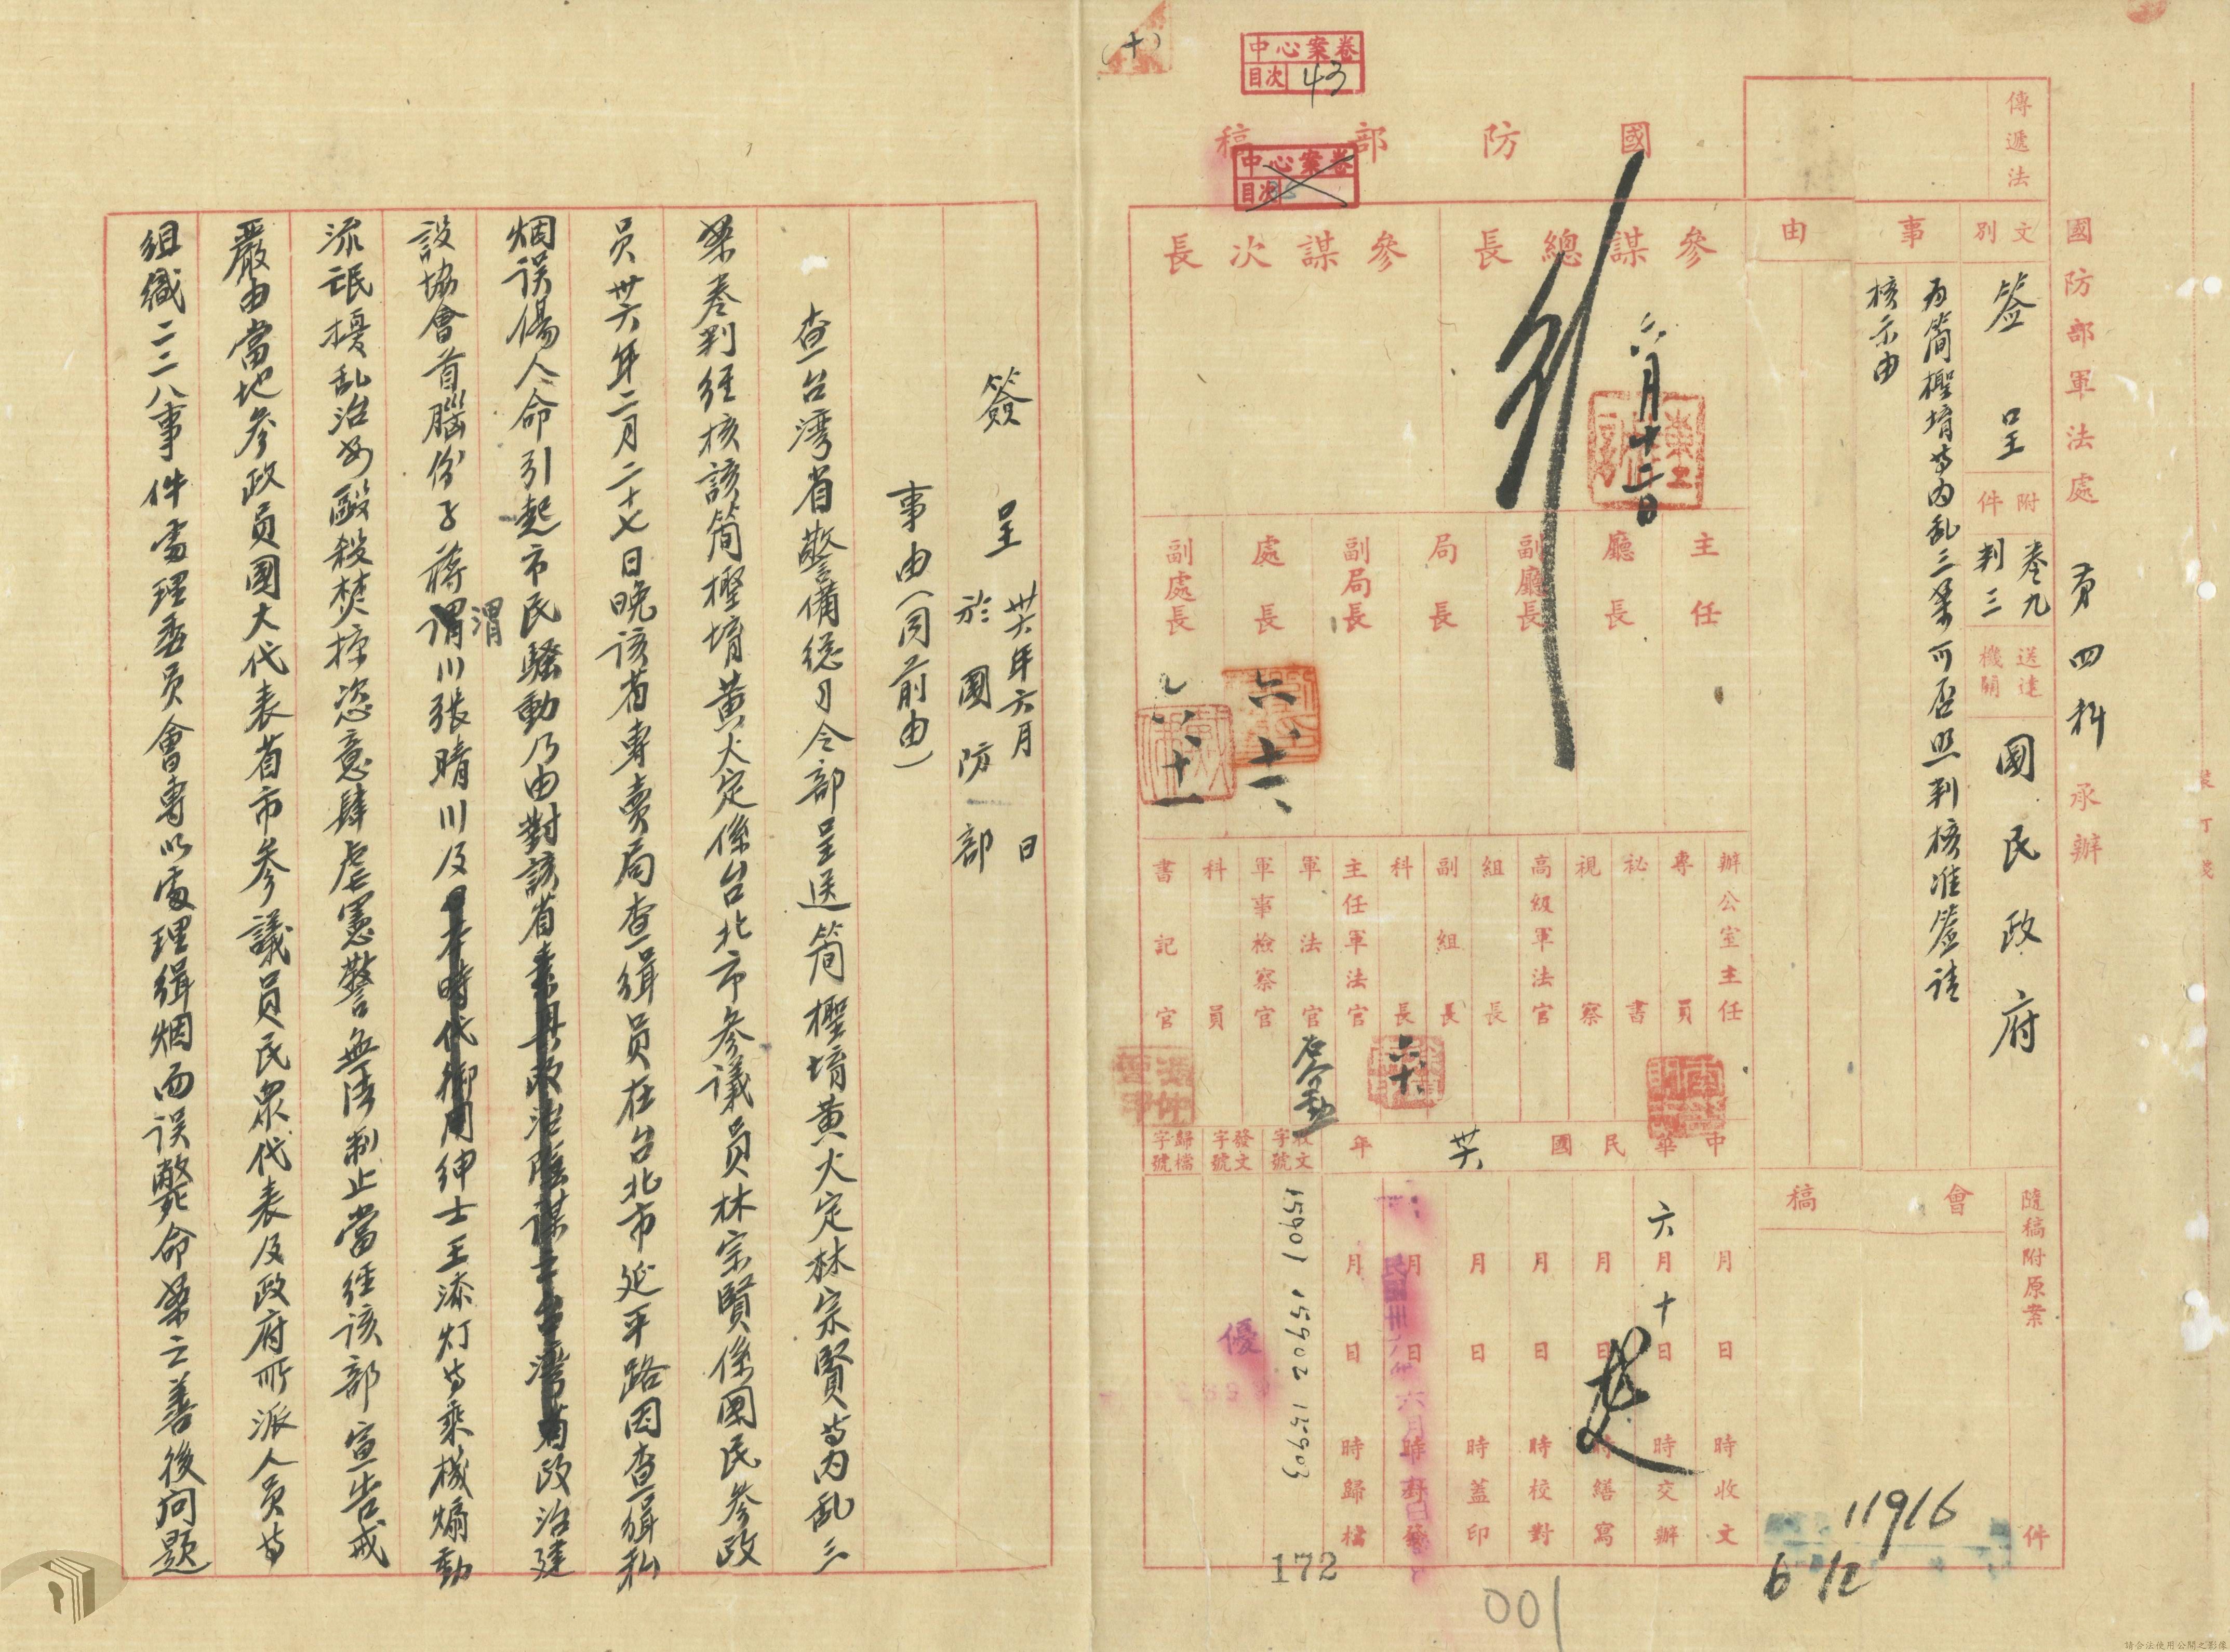 國防部軍法處 第四科 承辦
傳遞法
文別 簽呈
附件 卷九 判三
送達機關 國民政府
事由
為簡檉堉等內乱三案可否照判核准簽請
核示由
隨稿附原案 件
會稿
11916
6/12
中心案卷
目次 43
國防部稿
中心案卷
目次
參謀總長
參謀次長
六月十二日
主任
廳長
副廳長
局長
副局長
處長
副處長
六、十一、
六、十一
辦公室主任
專員
秘書
視察
高級軍法官
組長
副組長
科長
主任軍法官
軍法官
軍事檢察官
科員
書記官
六、十、
中華民國 卅六 年
收文字號
發文字號
歸檔字號
月 日 時收文
六月十日 時交辦
月 日 時繕寫
月 日 時校對
月 日 時蓋印
月 日 時
月 日 時歸檔
15901 15902 15903
優
172
001
(十)
簽呈 卅六年六月 日
於國防部
事由(同前由)
查台湾省警備總司令部呈送簡檉堉黃火定林宗賢等內乱三
案卷判經核該簡檉堉黃火定係台北市參議員林宗賢係國民參政
員卅六年二月二十七日晚該省專賣局查緝員在台北市延平路因查緝私
烟误傷人命引起市民騷動乃由對該省素具政治陰謀之台灣省政治建
設協會首腦份子蔣渭川張晴川及日本時代御用紳士王添灯等乘機煽動
流氓擾乱治安毆殺焚掠恣意肆虐憲警無法制止當經該部宣告戒
嚴由當地參政員國大代表省市參議員民眾代表及政府所派人員等
組織二二八事件處理委員會專以處理緝烟而误斃命案之善後问题
請合法使用公開之影像